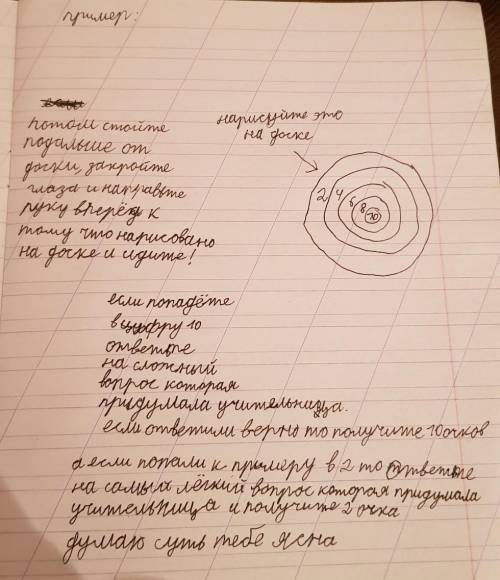 пример:
потом стойте
подальше от
доски, закройте
глаза и направьте
руку вперёд к
тому что нарисовано
на доске и идите!
нарисуйте это
на доске
2 4 6 8 10
если попадёте
в цифру 10
ответьте
на сложный
вопрос которая
придумала учительница.
если ответили верно то получите 10 очков
а если попали к примеру в 2 то ответьте
на самый лёгкий вопрос которая придумала
учительница и получите 2 очка
думаю суть тебе ясна